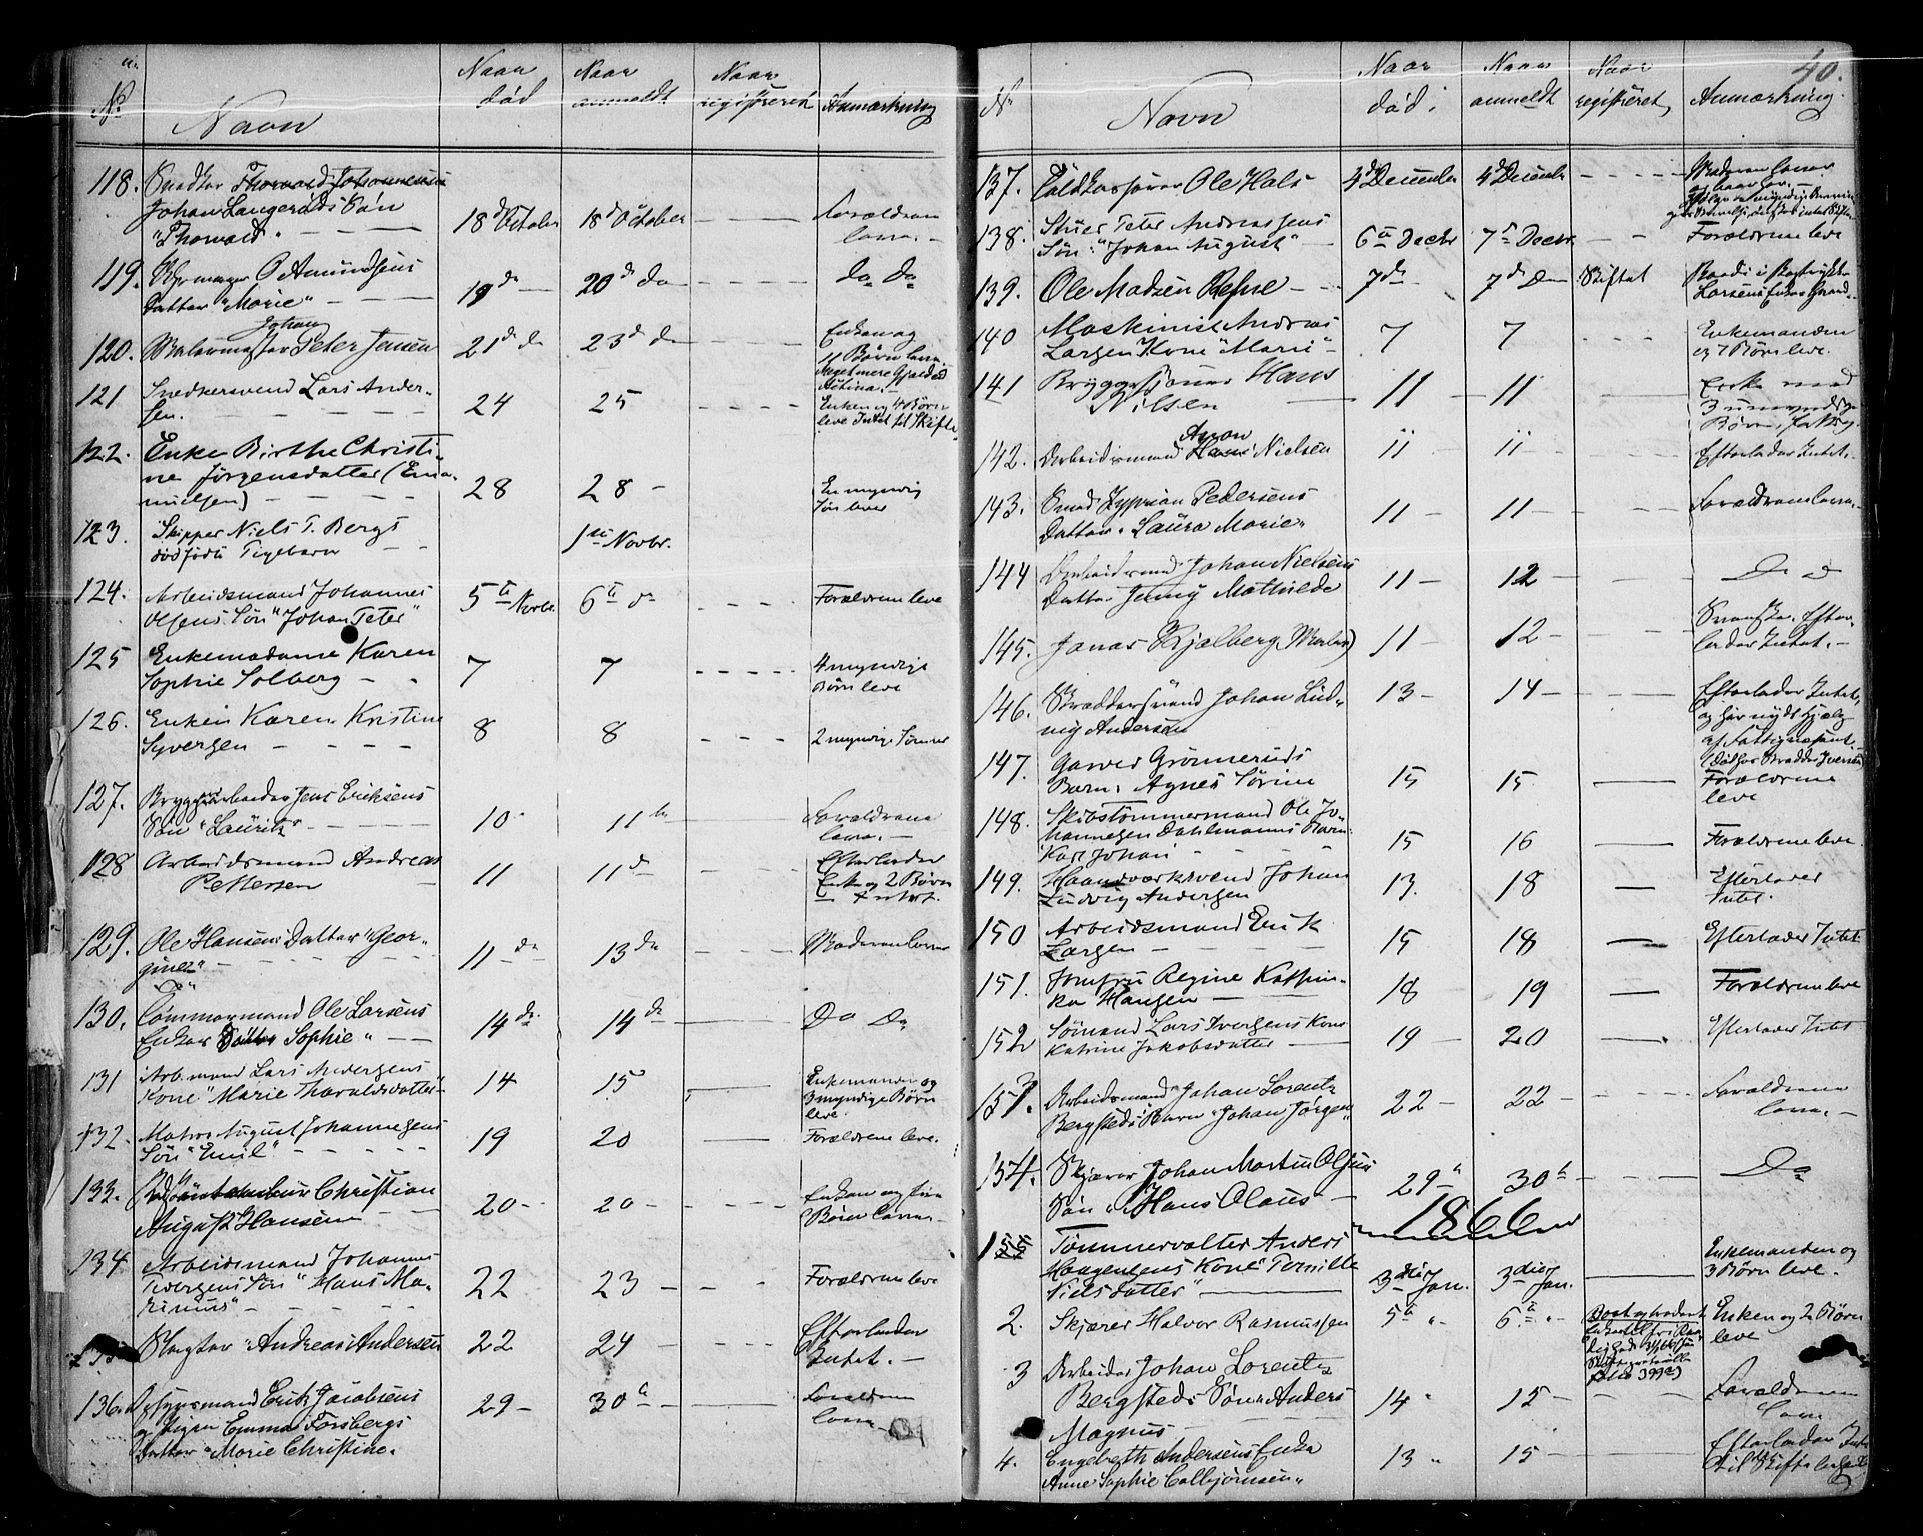 No Navn Naar død Naar anmeldt Naar registreret Anmærkning
118. Snedker Thorvald Johannesen
Johan Langerøds Søn
"Thorvald" 18d October 18d October Forældrene
leve.
119. O Amundsens
Datter "Marie" 19 do 20d do do do
120. Malermester Johan Peter Jensen 21d do 23d do Enken og
11 Børn leve.
121 Snedkersvend Lars Ander-
sen. 24 25 Enken og 4 Børn
leve Intet til Skifte
122. Enke Birthe Christi-
ne Jørgensdatter (Ema-
nuelsen) 28 28 En myndig
Søn lever
123. Skipper Niels T. Bergs
dødfødte Pigebarn 1ste Novbr.
124. Arbeidsmand Johannes
Olsens Søn "Johan Peter" 5te Novbr. 6te do Forældrene leve
125 Enkemadame Karen
Sophie Solberg 7 7 4 myndige
Børn leve
126. Enken Karen Kristine
Syversen 8 8 2 myndige Sønner
127. Bryggeriarbeider Jens Eriksens
Søn "Lauritz" 10 11te Forældrene
leve.
128 Arbeidsmand Andreas
Pettersen 11 11 do Efterlader
Enke og 2 Børn
Intet.
129. Ole Hansens Datter "Geor-
gine" 11 do 13 do Moderen lever
130. Tømmermand Ole Larsens
Enkes Datter Sophie" 14 do 14 do Do Do
131 Arb.mand Lars Andersens
Kone "Marie Tharaldsdatter" 14 15 Enkemanden og
3 myndige Børn
leve.
132. Matros August Johannesens
Søn "Emil" 19 20 Forældrene leve.
133. Christian
August Hansen 20 20 Enken og fire
Børn leve
134 Arbeidsmand Johannes
Iversens Søn "Hans Ma-
rinius" 22 23 Forældrene leve
135 Slagter Andreas Andersen 22 24 Efterlader
Intet.
136. Erik Jacobsens
og Pigen Emma Forsbergs
Datter "Marie Christine" 29 30te Forældrene
leve
40.
No Navn Naar død Naar anmeldt Naar registreret Anmærkning.
137. Toldkasserer Ole Hals 4d December 4d December
138. Stuer Peter Andreassens
Søn "Johan August" 6te Decbr 7de Decbr Forældrene leve
139. Ole Madsen Refne 7 do 7d Do Skiftet
140 Maskinist Andreas
Larsen Kone "Marie" 7 7 Enkemanden
og 7 Børn leve.
141 Bryggesjouer Hans
Nilsen 11 11 Enke med
3 umyndige
Børn,
142. Arbeidsmand Aron Nielsen 11 11 Efterlader Intet.
143. Smed Zyprian Pedersens
Datter "Laura Marie" 11 11 Forældrene leve
144 Arbeidsmand Johan Nielsens
Datter Jenny Mathilde 11 12 Do
145. Jonas Kjølberg (Maler) 11 12 Svenske. Efter-
lader Intet.
146. Skræddersvend Johan Lud-
vig Andersen 13 14 Efterlader Intet,
og har nydt Hjælp
af Fattigvæsenet
147. Garver Grønneruds
Barn Agnes Sørine 15 15 Forældrene
leve
148. Skibstømmermand Ole Jo-
hannesen Dahlmanns Barn
Karl Johan 15 16 Forældrene leve
149. Haandværksvend Johan
Ludvig Andersen 13. 18 Efterlader
Intet.
150 Arbeidsmand Erik
Larsen 15 18 Efterlader Intet
151. Jomfru Regine Kathin-
ka Hansen 18 19 Forældrene leve
152 Sømand Lars Iversens Kone
Katrine Jakobsdatter 19 20 Efterlader Intet
153. Arbeidsmand Johan Lorentz
Bergsteds Barn "Johan Jørgen" 22 22 Forældrene
leve.
154. Skjærer Johan Martin Olsens
Søn "Hans Olaus" 29te 30te Do
1866
155 Tømmervalter Anders
Haagensens Kone "Pernille
Nielsdatter" 3die Jan. 3die Jan. Enkemanden og
3 Børn leve.
2. Skjærer Halvor Rasmussen 5te 6te Enken og 2 Børn
leve
3 Arbeider Johan Lorentz
Bergsteds Søn "Anders
Magnus 14 15 Forældrene
leve
4. Engebreth Andersens Enke
Anne Sophie Colbjørnsen" 13 15 Efterlader Intet